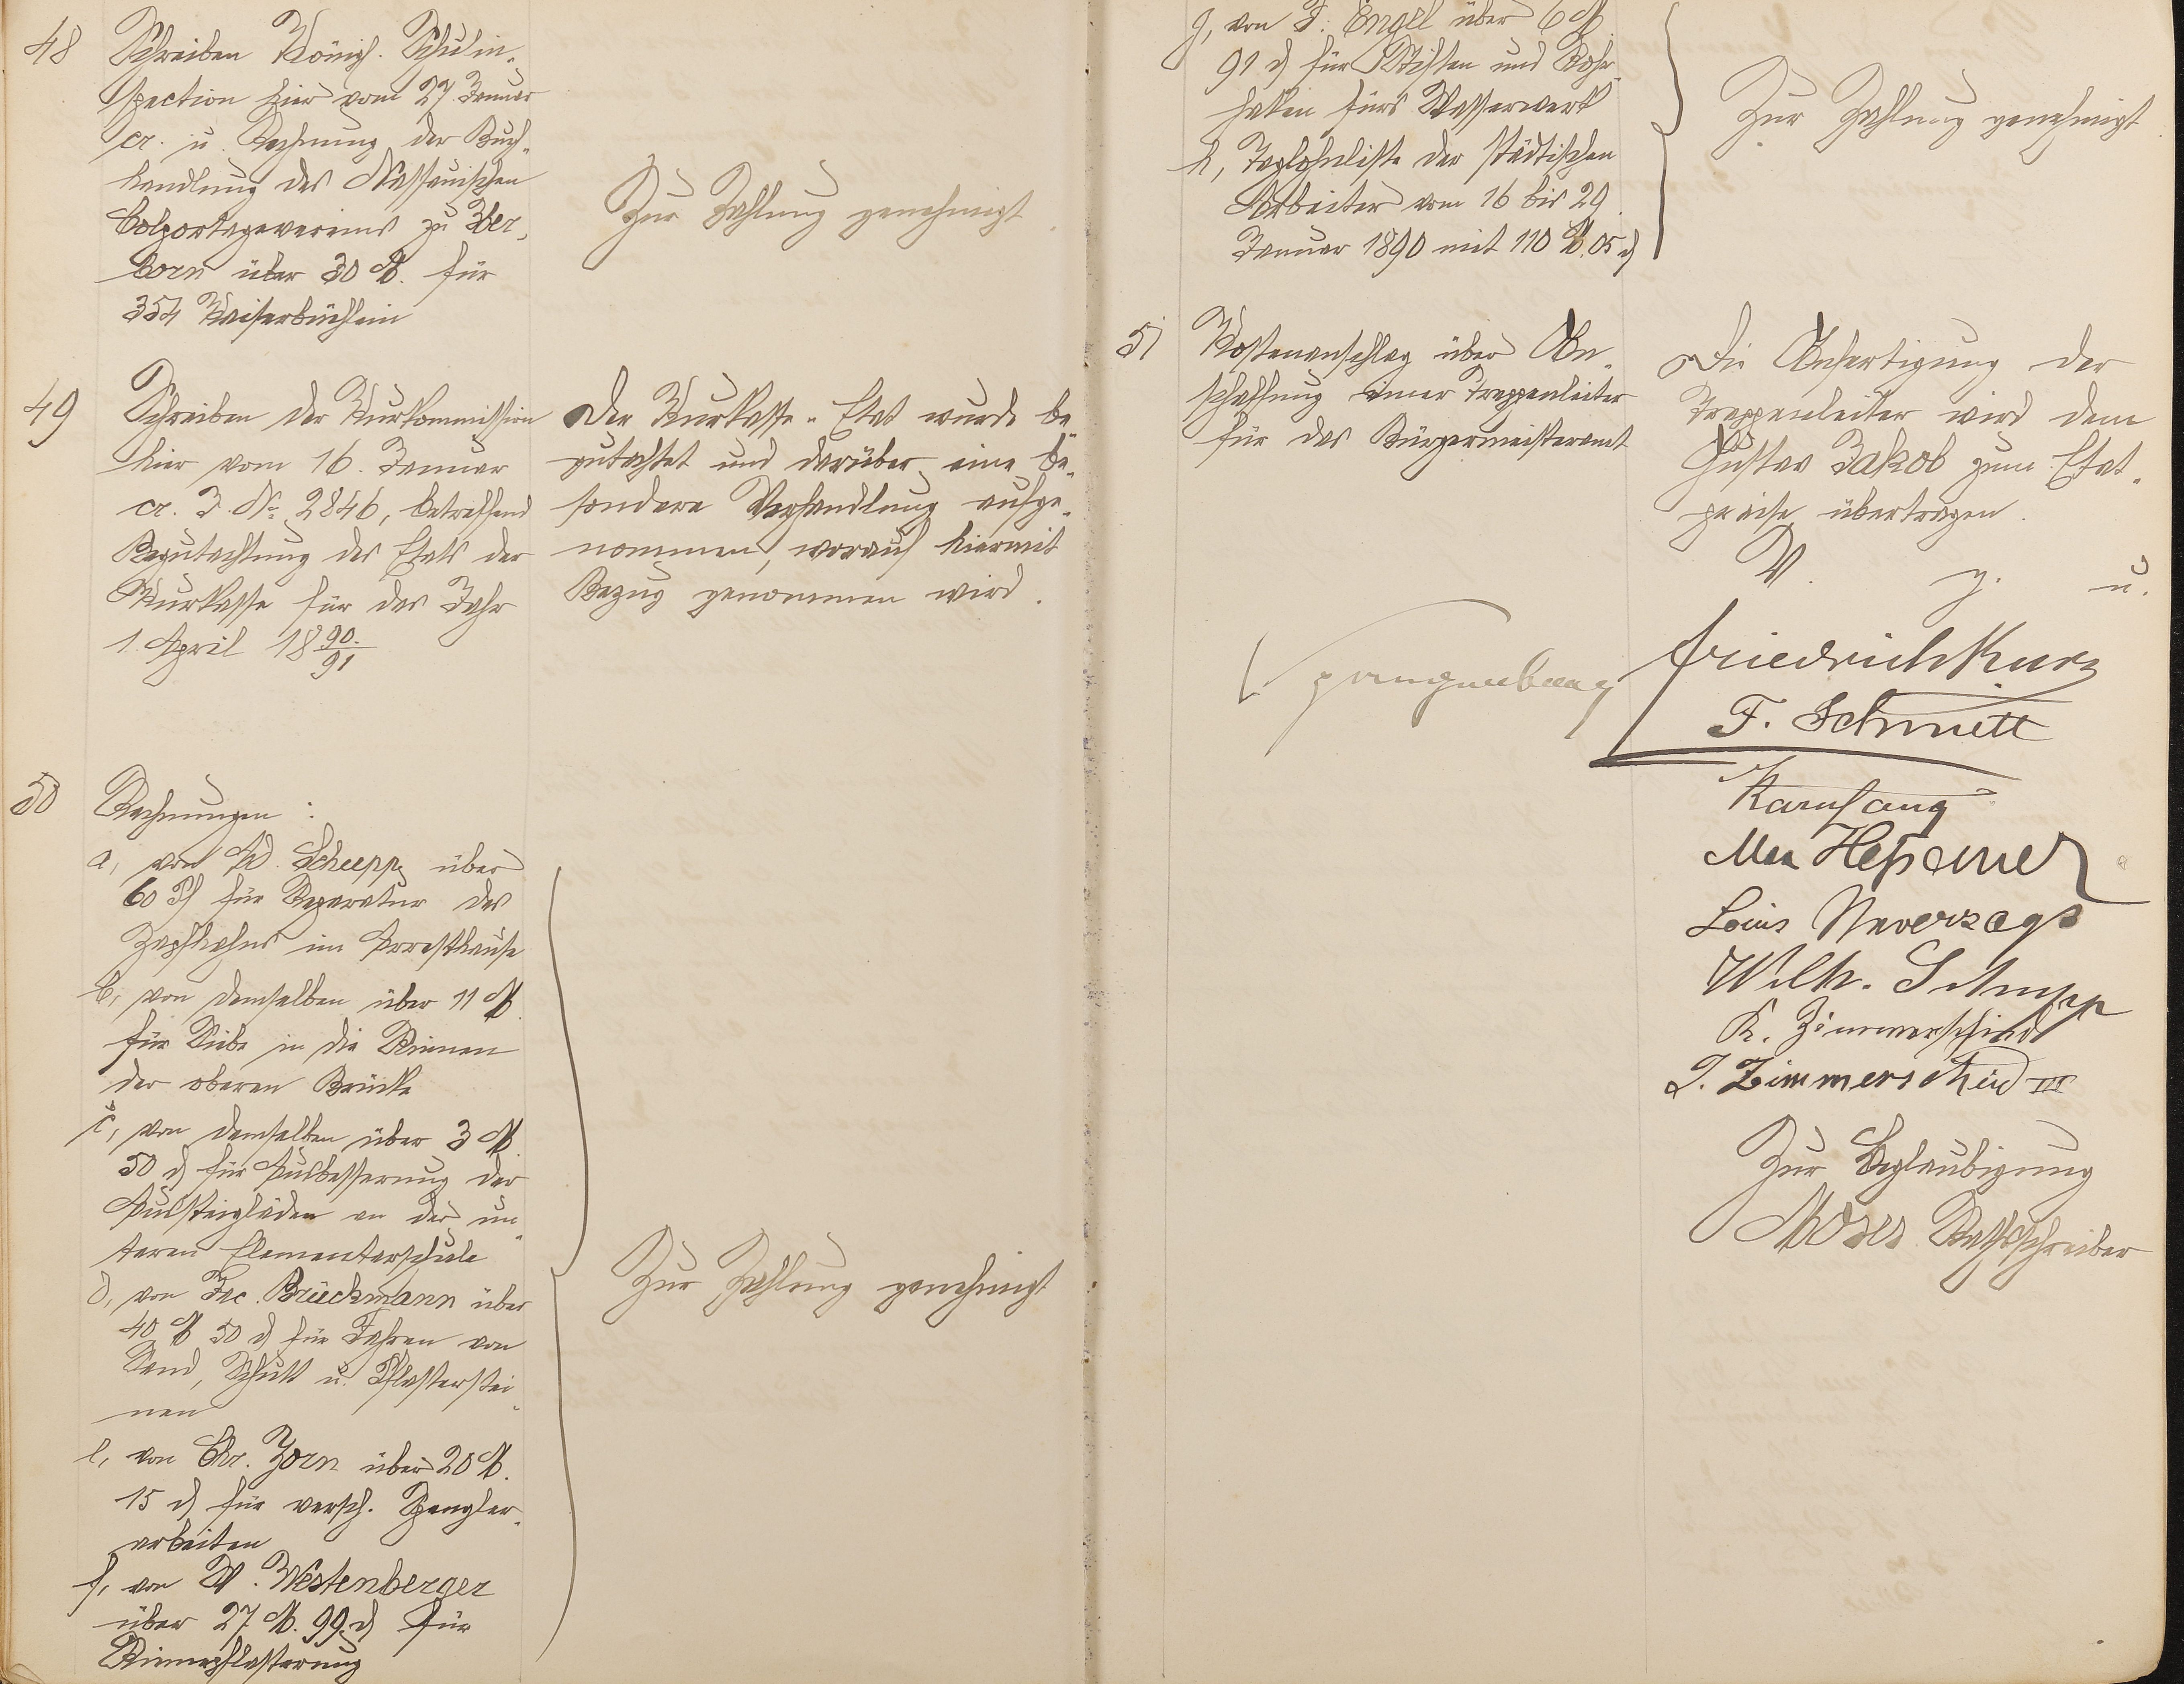 48
Schreiben Königl. Schulin-
spection hier vom 27. Januar
cr. u. Rechnung der Buch-
handlung des Nassauischen
Colportagevereins zu Her-
born über 30 M. für
354 Kaiserbüchlein
Zur Zahlung genehmigt.
49
Schreiben der Kurkommission
hier vom 16. Januar
cr. J. No. 2846, betreffend
Begutachtung des Etats der
Kurkasse für das Jahr
1. April 18 90/91
Der Kurkasse-Etat wurde be-
gutachtet und darüber eine be-
sondere Verhandlung aufge-
nommen, worauf hiermit
Bezug genommen wird.
50
Rechnungen :
a, von W. Scheepp über
60 Pf für Reparatur des
Zapfhahns im Arresthause
b, von demselben über 11 M.
für Siebe in die Rinnen
der oberen Brücke
c, von demselben über 3 M.
50 d für Ausbesserung der
Aussteigläden an der un-
teren Elementarschule
d, von Frc. Brückmann über
40 M 50 d für Fahren von
Sand, Schutt u. Pflasterstei-
nen
e, von Chr. Zorn über 20 M.
15 d für versch. Spengler-
arbeiten
f, von W. Westenberger
über 27 M. 99 d für
Rinnenpflasterung
Zur Zahlung genehmigt
g, von F. Engel über 6 M
91 d für Stiften und Rohr-
haken fürs Wasserwerk
h, Taglohnliste der städtischen
Arbeiter vom 16 bis 29.
Januar 1890 mit 110 M. 05 d
Zur Zahlung genehmigt
51
Kostenanschlag über An-
schaffung einer Treppenleiter
für das Bürgermeisteramt
Die Anfertigung der
Treppenleiter wird dem
Gustav Jakob zum Etat-
preise übertragen.
V. g. u.
Friedrich Kurz
F. Schmitt
Louis Unverzagt
Wilh. Schupp
K. Zimmerschied
J. Zimmerschied III
Zur Beglaubigung
Moses Rathsschreiber